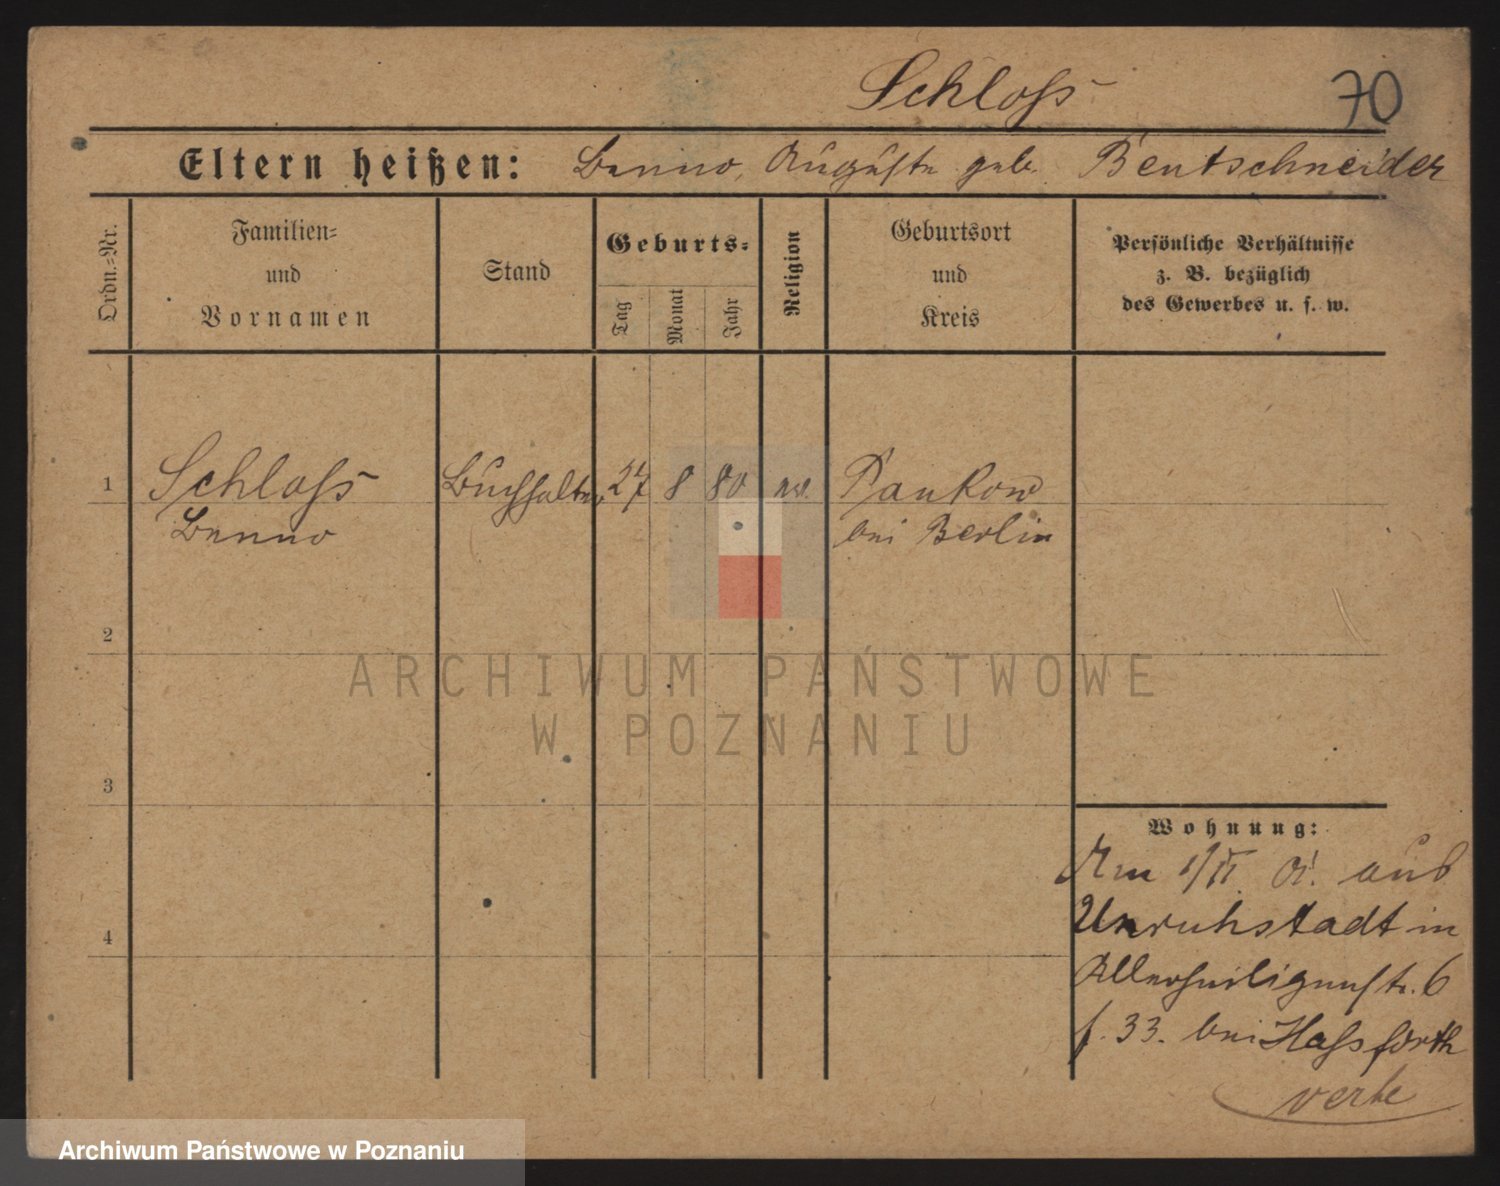 Schloß
70
Eltern heißen: Benno, Auguste geb. Bentschneider
Ordn.-Nr.
Familien-
und
Vornamen
Stand
Geburts-
Tag
Monat
Jahr
Religion
Geburtsort
und
Kreis
Persönliche Verhältnisse
z. B. bezüglich
des Gewerbes u. s. w.
1 Schloß Buchhalter 27 8 80 ev. Pankow
Benno bei Berlin
2
3
4
Wohnung:
Am 1/II 01. aus
Unruhstadt in
Allerheiligenstr. 6
f. 33. bei Haßforth
ARCHIWUM PAŃSTWOWE
W POZNANIU
Archiwum Państwowe w Poznaniu